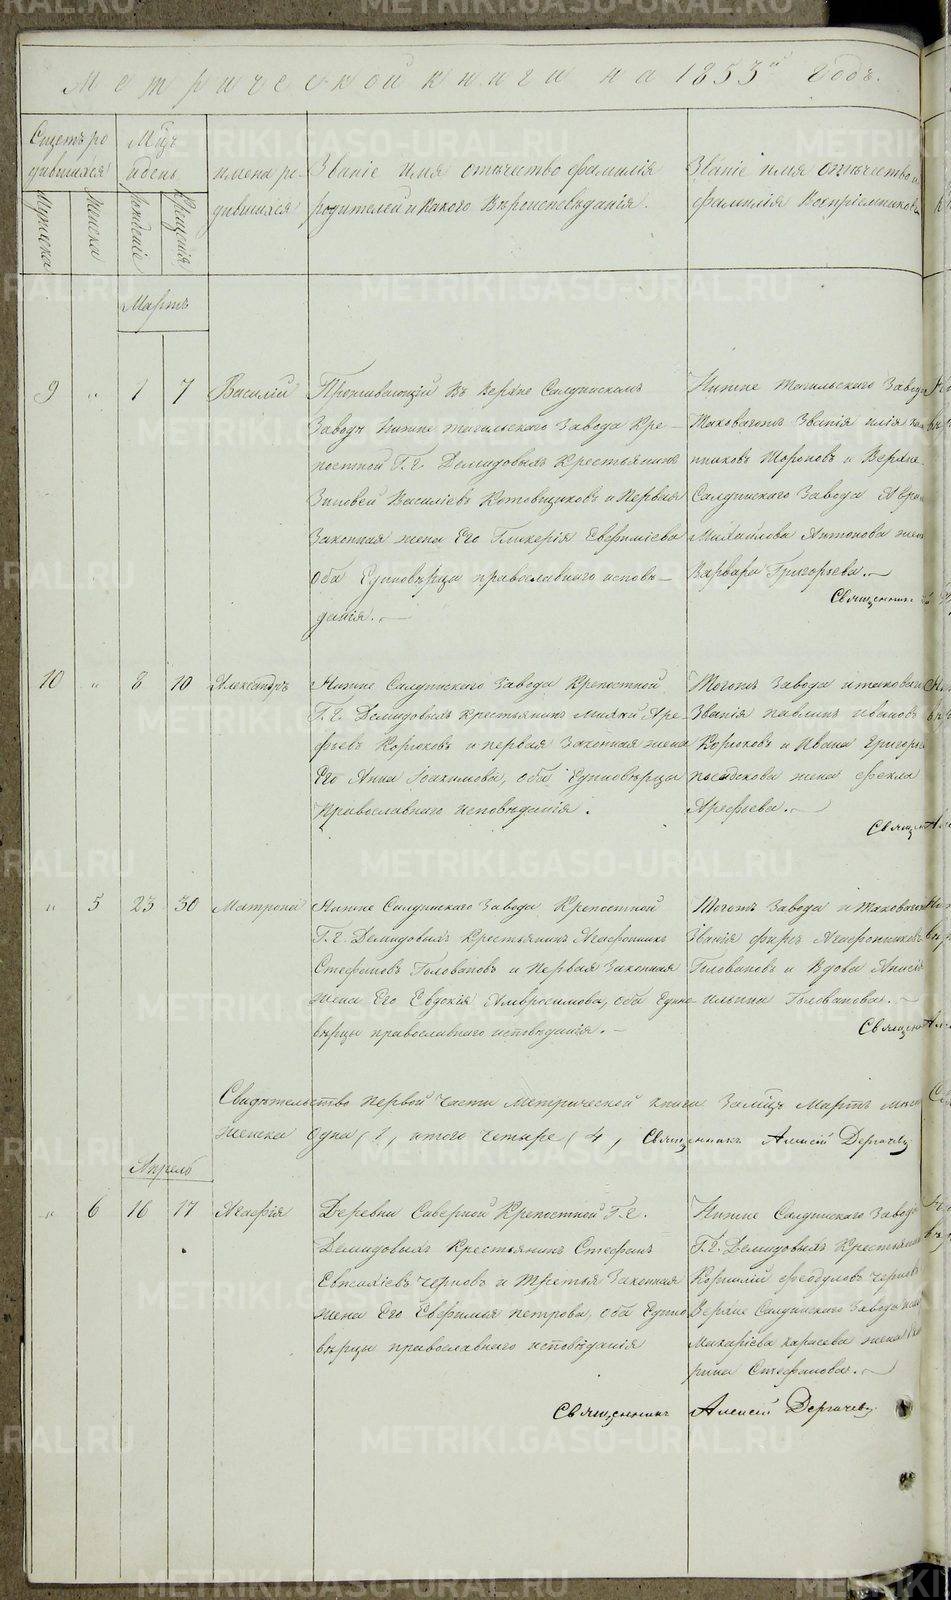 Метрической книги на 1853й годъ.
Счетъ ро
дившихся
Мужска
Женска
Мцъ
и день
рожденія
Крещенія
имена ро-
дившихся
Званіе имя отчество фамилія
родителей и какого вѣроисповѣданія.
Званіе имя отчество и
фамилія Воспріемниковъ
Мартъ
9 " 1 7 Василій
Проживающій въ Верхне Салдинскомъ
Заводѣ Нижне Тагильскаго Завода Кре-
постной Г.г. Демидовыхъ Крестьянинъ
Зиновей Василіевъ Котовщиковъ и первая
Законная жена Его Гликерія Евфиміева
Оба Единовѣрцы православнаго исповѣ-
данія.
Нижне Тагильскаго Завода
Таковагожъ Званія илія
Топоровъ и Верхне
Салдинскаго Завода
Михайлова Антонова жена
Варвара Григорьева.
Священникъ
10 " 8 10 Александръ
Нижне Салдинскаго Завода Крепостной
Г.г. Демидовыхъ крестьянинъ Михай Аре-
фьевъ Корюковъ и первая Законная жена
Его Анна Іоакимова, оба Единовѣрцы
православнаго исповѣданія.
Тогожъ Завода и таковаго
Званія павлинъ ивановъ
Корюковъ и Ивана Григорье
жена фекла
Арефьева.
Священ
" 5 23 30 Матрона
Нижне Салдинскаго Завода Крепостной
Г.г. Демидовыхъ Крестьянинъ Агафонникъ
Стефановъ Головановъ и первая Законная
жена Его Евдокія Амвросимова, оба Едино
вѣрцы православнаго исповѣданія.
Тогожъ Завода и Таковагожъ
Званія фирсъ Агафонниковъ
Головановъ и Вдова Анисія
ильина Голованова.
Священ
Свидѣтельство первой части метрической книги За мцъ Мартъ
женска Одна (1, итого четыре (4, Священникъ Алексій Дергачевъ
Апрель
" 6 16 17 Агафія
Деревни Северной Крепостной Г.г.
Демидовыхъ Крестьянинъ Стефанъ
Евсихіевъ Черновъ и Третья Законная
жена Его Евфимія петрова, оба Едино
вѣрцы православнаго исповѣданія
Нижне Салдинскаго Завода
Г.г. Демидовыхъ Крестьянинъ
Корнилій феодуловъ Черновъ
Верхне Салдинскаго Завода
Макаріева карасева жена
рина Стефанова.
Священникъ Алексій Дергачевъ
METRIKI.GASO-URAL.RU